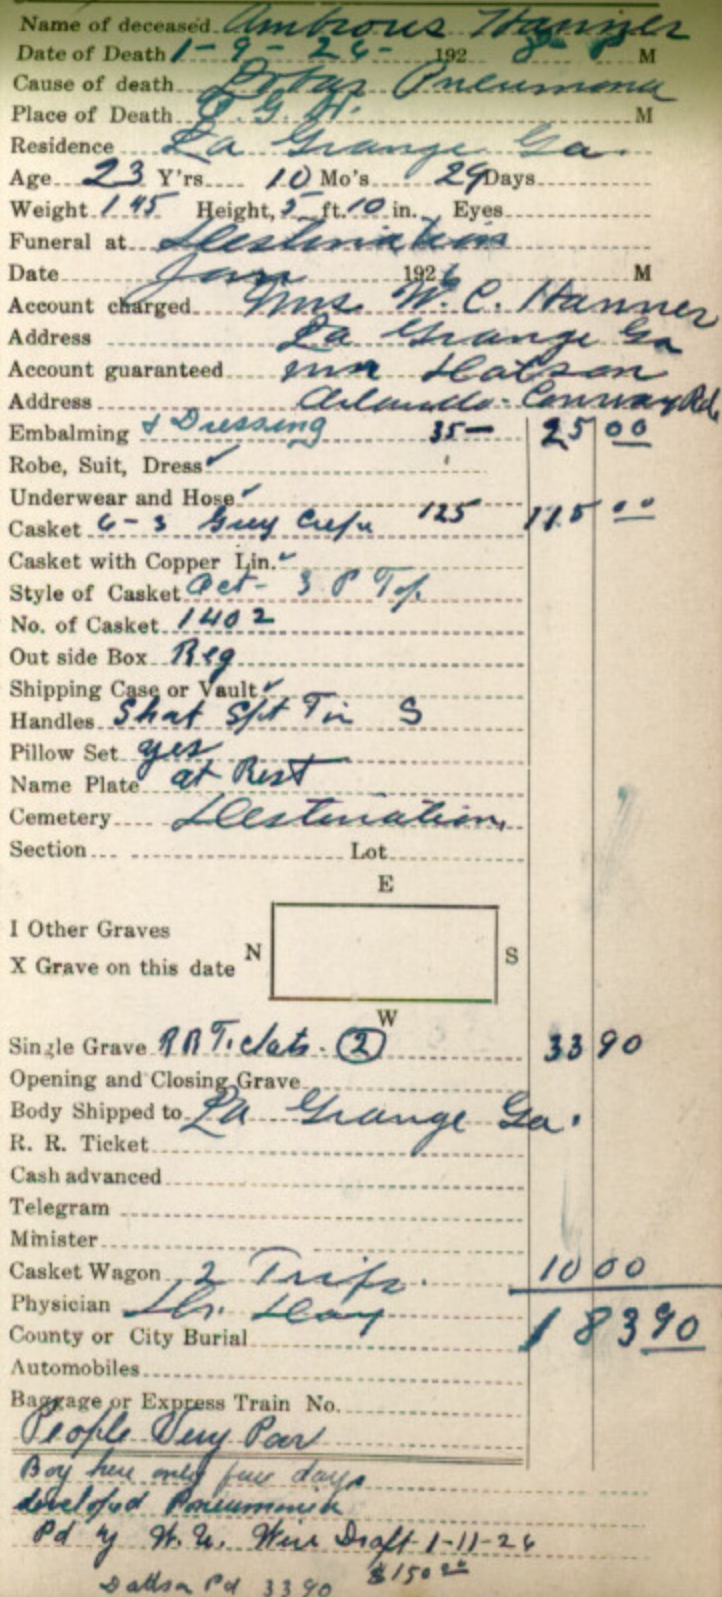 Name of deceased Ambrous Hanner
Date of Death 1-9-26- 192 8- P M
Cause of death Lobar Pneumonia
Place of Death O. G. H. M
Residence La Grange Ga.
Age 23 Y'rs 10 Mo's 29 Days
Weight 145 Height, 5 ft. 10 in. Eyes
Funeral at Destination
Date Jan 1926 M
Account charged Mrs. W. C. Hanner
Address La Grange Ga
Account guaranteed
Address Orlando-Conway Rd.
Embalming & Dressing 35— 25 00
Robe, Suit, Dress ✓
Underwear and Hose ✓
Casket 6-3 Grey Crepe 125 115 00
Casket with Copper Lin. ✓
Style of Casket Oct- 3 P Top
No. of Casket 1402
Out side Box Reg
Shipping Case or Vault ✓
Handles Tin S
Pillow Set yes
Name Plate at Rest
Cemetery Destination
Section Lot
E
I Other Graves
N S
X Grave on this date
W
Single Grave RR Tickets. 2 33 90
Opening and Closing Grave
Body Shipped to La Grange Ga.
R. R. Ticket
Cash advanced
Telegram
Minister
Casket Wagon 2 Trips. 10 00
Physician Dr. Day
183 90
County or City Burial
Automobiles
Baggage or Express Train No.
People Very Poor
Boy here only few days
developed Pneumonia
Pd by W. U. Wire Draft 1-11-26
$150 00
Pd 33 90